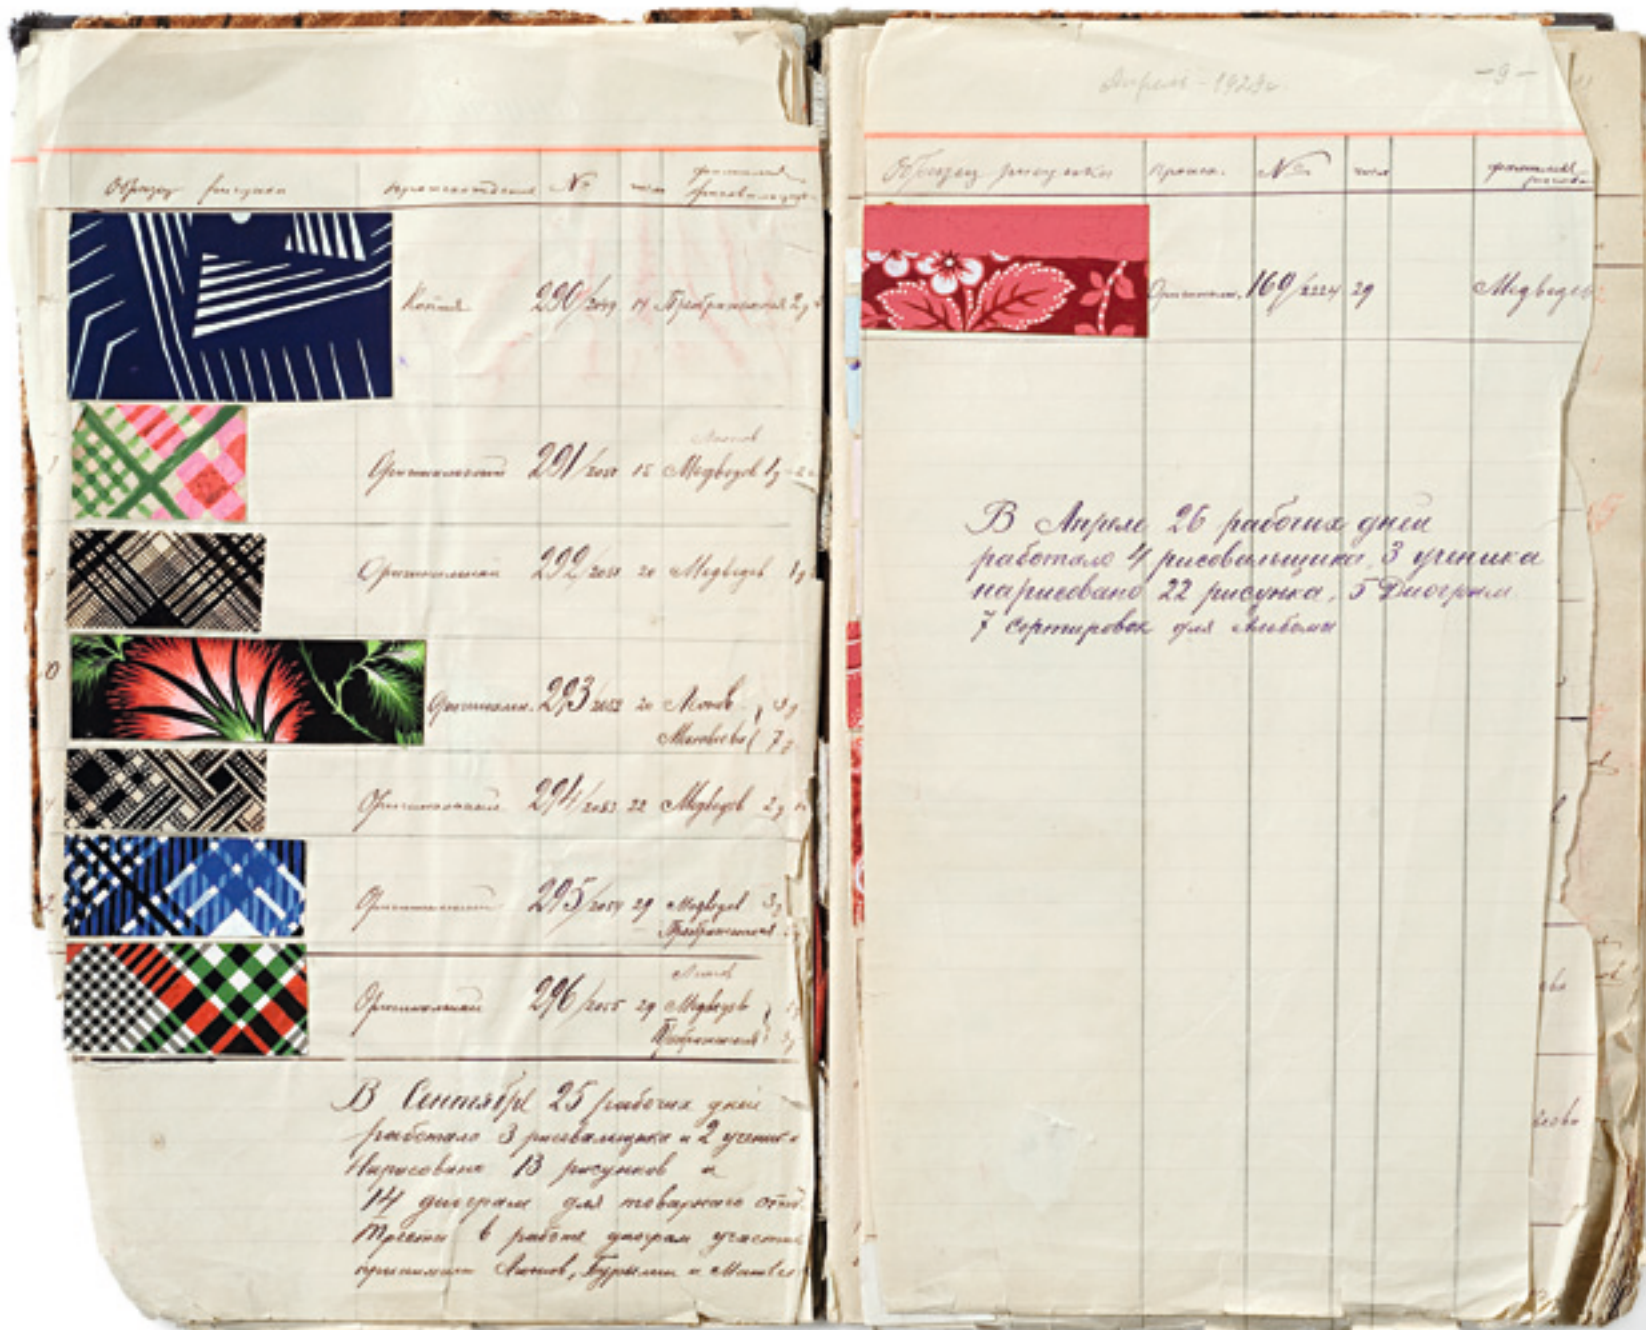 Образец рисунка происхождение № число фамилия рисовальщика
Копия 290/2049 14 Преображенская 2 д
Леонов
Оригинальный 291/2050 15 Медведев 1 д
Оригинальный 292/2051 20 Медведев 1 д
Оригинальн. 293/2052 20 Леонов 3 д
Матвеева 7 д
Оригинальный 294/2053 22 Медведев 2 д
Оригинальный 295/2054 29 Медведев 3 д
Преображенская
Оригинальный 296/2055 29 Медведев
Преображенская 3 д
В Сентябре 25 рабочих дней
работало 3 рисовальщика и 2 ученика
Нарисовано 13 рисунков и
14 диограм для товарного отд.
Треста в работе диограм участие
принимали Леонов, Бурылин и Матвеев
Апрель - 1929 г.
- 9 -
Образец рисунка происх. № число фамилия рисов.
Оригинальн. 169/2224 29 Медведев
В Апреле 26 рабочих дней
работало 4 рисовальщика, 3 ученика
нарисовано 22 рисунка, 5 Диограм
7 сортировок для Альбома